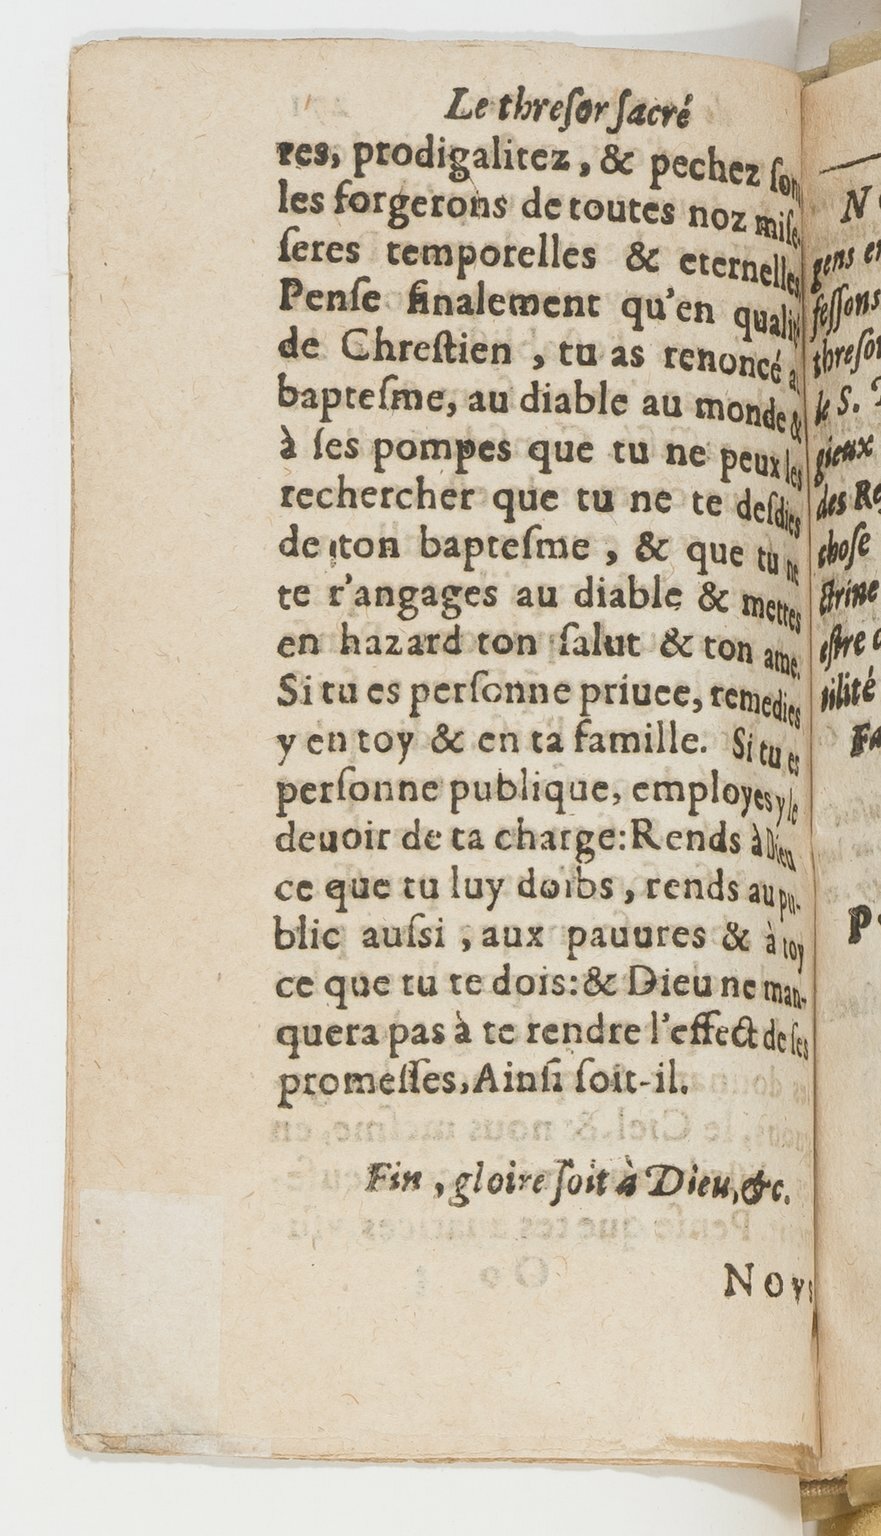 Le threſor ſacré
res, prodigalitez, & pechez ſont
les forgerons de toutes noz miſe-
ſeres temporelles & eternelles
Penſe finalement qu'en qualité
de Chreſtien , tu as renoncé à
bapteſme, au diable au monde &
à ſes pompes que tu ne peux les
rechercher que tu ne te deſdies
de ton bapteſme , & que tu ne
te r'angages au diable & mettes
en hazard ton ſalut & ton ame.
Si tu es perſonne priuee, remedies
y en toy & en ta famille. Si tu es
perſonne publique, employes y le
deuoir de ta charge: Rends à Dieu
ce que tu luy doibs , rends au pu-
blic auſsi , aux pauures & à toy
ce que tu te dois: & Dieu ne man-
quera pas à te rendre l'effect de ſes
promeſſes, Ainſi ſoit-il.
Fin , gloire ſoit à Dieu, &c.
Novs
gens
feſſons
threſor
le S.
gieux
des
choſe
ctrine
eſtre
tilité